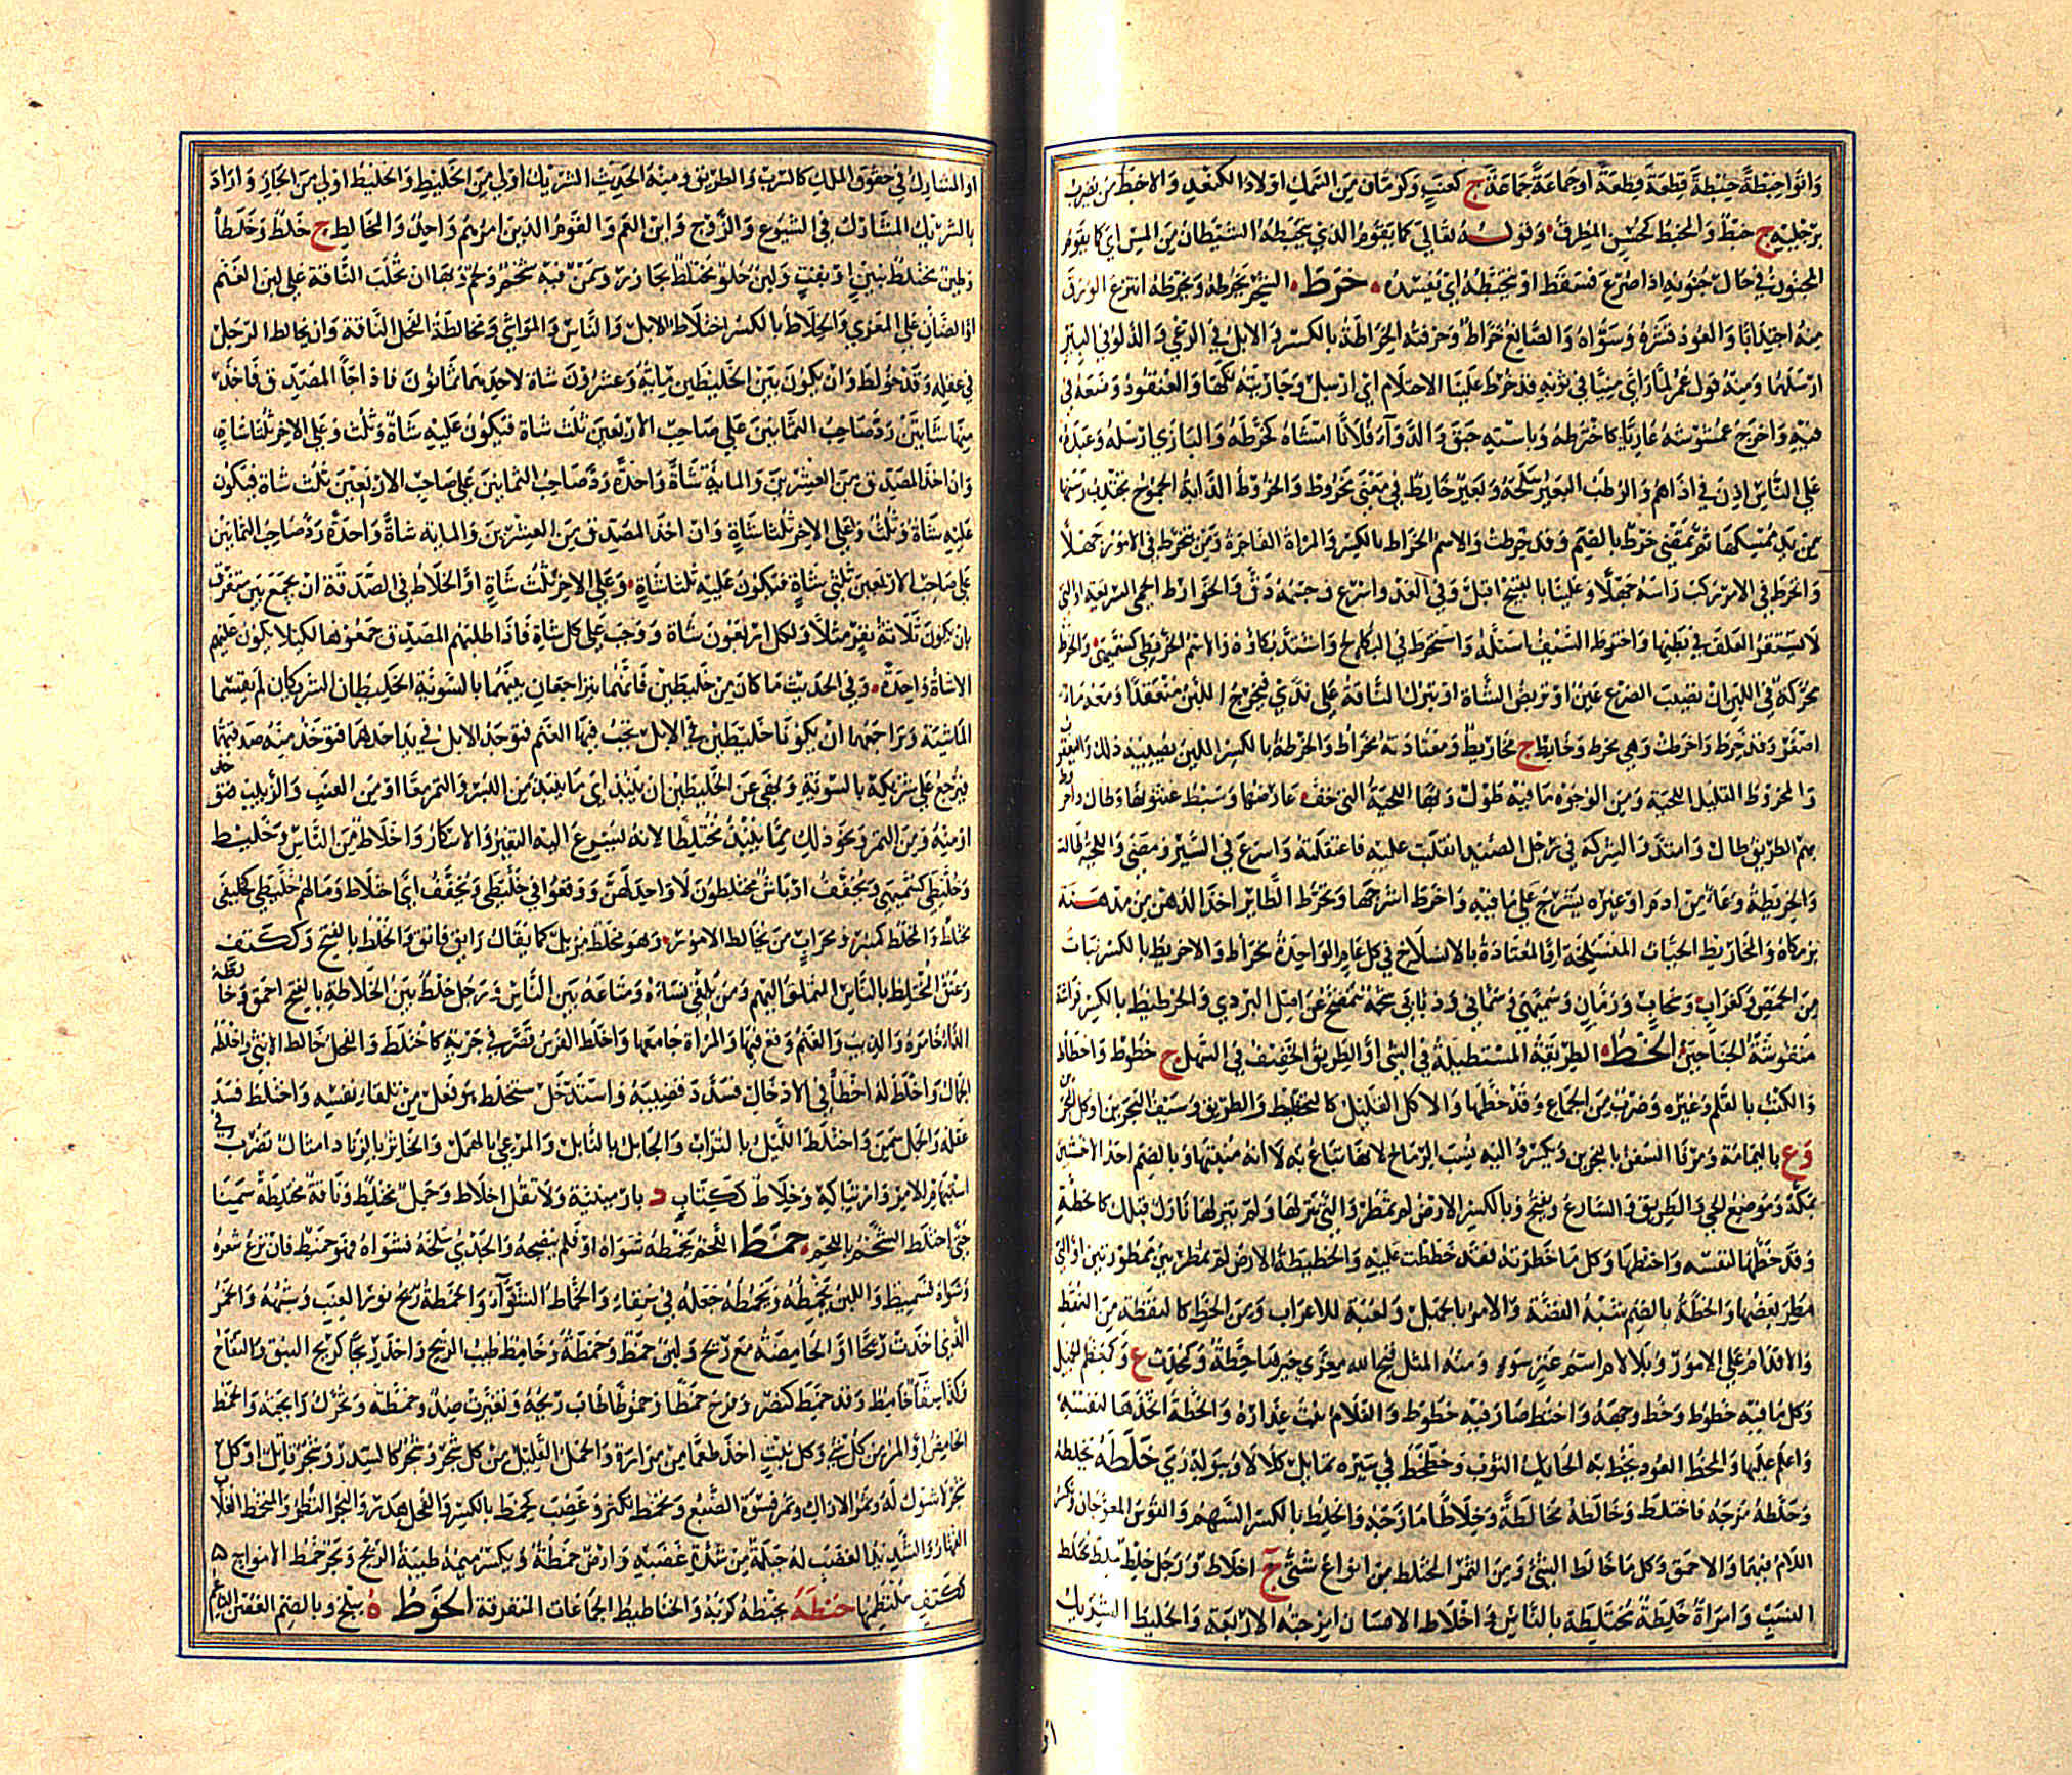 واتوا خبطة خبطة قطعة قطعة او جماعة جماعة ج كعنب وكرمان من السمك اولاد الكنعد والاخبط من يضرب
برجليه ج خبط والمخبط كمحسن المطرق وقوله تعالى كما يقوم الذي يتخبطه الشيطان من المس اي كما يقوم
المجنون في حال جنونه اذا صرع فسقط او يتخبطه اي يفسده خرط الشجر يخرطه ويخرطه انتزع الورق
منه اجتذابا والعود قشره وسواه والصانع خراط وحرفته الخراطة بالكسر والابل في الرعي والدلو في البئر
ارسلهما ومنه قول عمر لما راى منيا في ثوبه قد خرط علينا الاحتلام اي ارسل وجاريته نكحها والعنقود وضعه في
فيه واخرج عمشوشه عاريا كاخترطه وباسته حبق والدواء فلانا امشاه كخرطه والبازي ارسله وعبده
على الناس اذن في اذاهم والرطب البعير سلحه وبعير خارط في معنى مخروط والخروط الدابة الجموح يجتذب رسنها
من يد ممسكها ثم تمضي خرط بالضم وقد خرطت والاسم الخراط بالكسر والمراة الفاجرة ومن ينخرط في الامور جهلا
وانخرط في الامر ركب راسه جهلا وعلينا بالقبيح اقبل وفي العدو اسرع وجسمه دق والخوارط الحمر السريعة او التي
لا يستقر العلف في بطنها واخترط السيف استله واستخرط في البكاء لج واشتد بكاؤه والاسم الخريطى كسميهى والخرط
محركة في اللبن ان يصيب الضرع عين او تربض الشاة او تبرك الناقة على ندى فيخرج اللبن منعقدا ومعه ماء
اصفر وقد خرطت واخرطت وهي مخرط وخارط ج مخاريط ومعتادته مخراط والخرطة بالكسر اللبن يصيبه ذلك واليعقوب
والمخروط القليل اللحية ومن الوجوه ما فيه طول وبهاء اللحية التي خف عارضاها وسبط عثنونها وطال واخروط
بهم الطريق طال وامتد والشركة في رجل الصيد انقلبت عليه فاعتقلته واسرع في السير ومضى واللحية طالت
والخريطة وعاء من ادم او غيره يشرج على ما فيه واخرط اشرجها وتخرط الطاير اخذ الدهن من مدهنته
بزمكاه والمخاريط الحيات المنسلخة او المعتادة بالانسلاخ في كل عام الواحدة مخراط والاخريط بالكسر نبات
من الحمض وكغراب وسحاب ورمان وسميهى وسمانى وذنابى شحمة تتمصخ عن اصل البردي والخرطيط بالكسر فراشة
منقوشة الجناحين الخط الطريقة المستطيلة في الشي او الطريق الخفيف في السهل ج خطوط واخطاط
والكتب بالقلم وغيره وضرب من الجماع وقد خطها والاكل القليل كالتخطيط والطريق وسيف البحرين او كل سيف
وع باليمامة ومرفا السفن بالبحرين ويكسر واليه نسب الرماح لانها تباع به لا انه منبتها وبالضم احد الاخشبين
بمكة وموضع الحي والطريق والشارع ويفتح وبالكسر الارض لم تمطر والتي تنزلها ولم ينزلها نازل قبلك كالخطة
وقد خطها لنفسه واختطها وكل ما خطرته لفقد خططت عليه والخطيطة الارض لم تمطر بين ممطورتين او التي
مطر بعضها والخطة بالضم شبه القصة والامر والجهل ولعبة للاعراب ومن الخط كالنقطة من النقط
والاقدام على الامور وبلا لام اسم عنز سوء ومنه المثل قبح الله معزى خيرها خطة وكحديث ع وكمعظم الجميل
وكل ما فيه خطوط وخط وجهه واختط صار فيه خطوط والغلام نبت عذاره والخطة اتخذها لنفسه
واعلم عليها والمخط العود يخط به الحايك الثوب وخطخط في سيره تمايل كلالا وببوله رمى خلطه يخلطه
وخلطه مزجه فاختلط وخالطه مخالطة وخلاطا مازجه والخلط بالكسر السهم والقوس المعوجان ويكسر
اللام فيهما والاحمق وكل ما خالط الشئ ومن التمر المختلط من انواع شتى ج اخلاط ورجل خلط ملط مختلط
النسب وامراة خلطة مختلطة بالناس واخلاط الانسان امزجته الاربعة والخليط الشريك
او المشارك في حقوق الملك كالشرب والطريق ومنه الحديث الشريك اولى من الخليط والخليط اولى من الجار واراد
بالشريك المشارك في الشيوع والزوج وابن العم والقوم الذين امرهم واحد والمخالط ج خلط وخلطاء
وطين مختلط بتبن او بقت ولبن حلو مختلط بحازر وسمن فيه شحم ولحم وبهاء ان تحلب الناقة على لبن الغنم
او الضان على المعزى والخلاط بالكسر اختلاط الابل والناس والمواشي ومخالطة الفحل الناقة وان يخالط الرجل
في عقله وقد خولط وان يكون بين الخليطين ماية وعشرون شاة لاحدهما ثمانون فاذا جا المصدق فاخذ
منها شاتين رد صاحب الثمانين على صاحب الاربعين ثلث شاة فيكون عليه شاة وثلث وعلى الاخر ثلثا شاة
وان اخذ المصدق من العشرين والماية شاة واحدة رد صاحب الثمانين على صاحب الاربعين ثلث شاة فيكون
عليه شاة وثلث وعلى الاخر ثلثا شاة وان اخذ المصدق من العشرين والماية شاة واحدة رد صاحب الثمانين
على صاحب الاربعين ثلثي شاة فيكون عليه ثلثا شاة وعلى الاخر ثلث شاة او الخلاط في الصدقة ان يجمع بين متفرق
بان يكون ثلاثة نفر مثلا ولكل اربعون شاة ووجب على كل شاة فاذا اظلهم المصدق جمعوها لكيلا يكون عليهم
الا شاة واحدة وفي الحديث ما كان من خليطين فانهما يتراجعان بينهما بالسوية الخليطان الشريكان لم يقتسما
الماشية وتراجعهما ان يكونا خليطين في الابل يجب فيها الغنم فتوجد الابل في يد احدهما فتوخذ منه صدقتهما
فيرجع على شريكه بالسوية ونهي عن الخليطين ان ينبذا اي ما ينبذ من البسر والتمر معا او من العنب والزبيب
او منه ومن التمر ونحو ذلك مما ينبذ مختلطا لانه يسرع اليه التغير والاسكار واخلاط من الناس وخليط
وخليطى كسميهى ويخفف اوباش مختلطون لا واحد لهن ووقعوا في خليطى ويخفف اي اختلاط ومالهم خليطى كخليفى
مختلط والمخلط كمنبر ومحراب من يخالط الامور وهو مخلط مزيل كما يقال راتق فاتق والخلط بالفتح وككتف
وعنق المختلط بالناس المتملق اليهم ومن يلقي نساءه ومتاعه بين الناس ورجل خلط بين الخلاطة بالفتح احمق وخالطه
الداء خامره والذيب الغنم وقع فيها والمراة جامعها واخلط الفرس قصر في جريه كاختلط والفحل خالط الانثى واخلطه
الجمال واخلط له اخطا في الادخال فسدد قضيبه واستخلط هو فعل من تلقاء نفسه واختلط فسد
عقله والجمل سمن واختلط الليل بالتراب والحابل بالنابل والمرعي بالهمل والخاثر بالزباد امثال تضرب في
استبهام الامر وارتباكه وخلاط ككتاب د بارمينية ولا تقل اخلاط وجمل مختلط وناقة مختلطة سمينا
حتى اختلط الشحم باللحم خمط اللحم يخمطه شواه او فلم ينضجه والجدي سلخه فشواه فهو خميط فان نزع شعره
وشواه فسميط واللبن يخمطه ويخمطه جعله في سقاء والخماط الشواء والخمطة ريح نور العنب وشبهه والخمر
التي اخذت ريحا او الحامضة مع ريح ولبن خمط وخمطة وخامط طيب الريح او اخذ ريحا كريح النبق والتفاح
وكذا سقاء خامط وقد خمط كنصر وفرح خمطا وخموطا طاب ريحه وتغيرت ضد وخمطته ويحرك رايحته والخمط
الحامض او المر من كل شي وكل نبت اخذ طعما من مرارة والحمل القليل من كل شجر وشجر كالسدر وشجر قاتل او كل
شجر لا شوك له وثمر الاراك وثمر فسوة الضبع وتخمط تكبر وغضب كخمط بالكسر والفحل هدر والبحر التطم والمتخمط القهار
الغلاب والشديد الغضب له جلبة من شدة غضبه وارض خمطة وتكسر ميمه طيبة الريح وبحر خمط الامواج
ككتف ملتطمها خنطه يخنطه كربه والخناطيط الجماعات المتفرقة الخوط ه ببلخ وبالضم الغصن الناعم